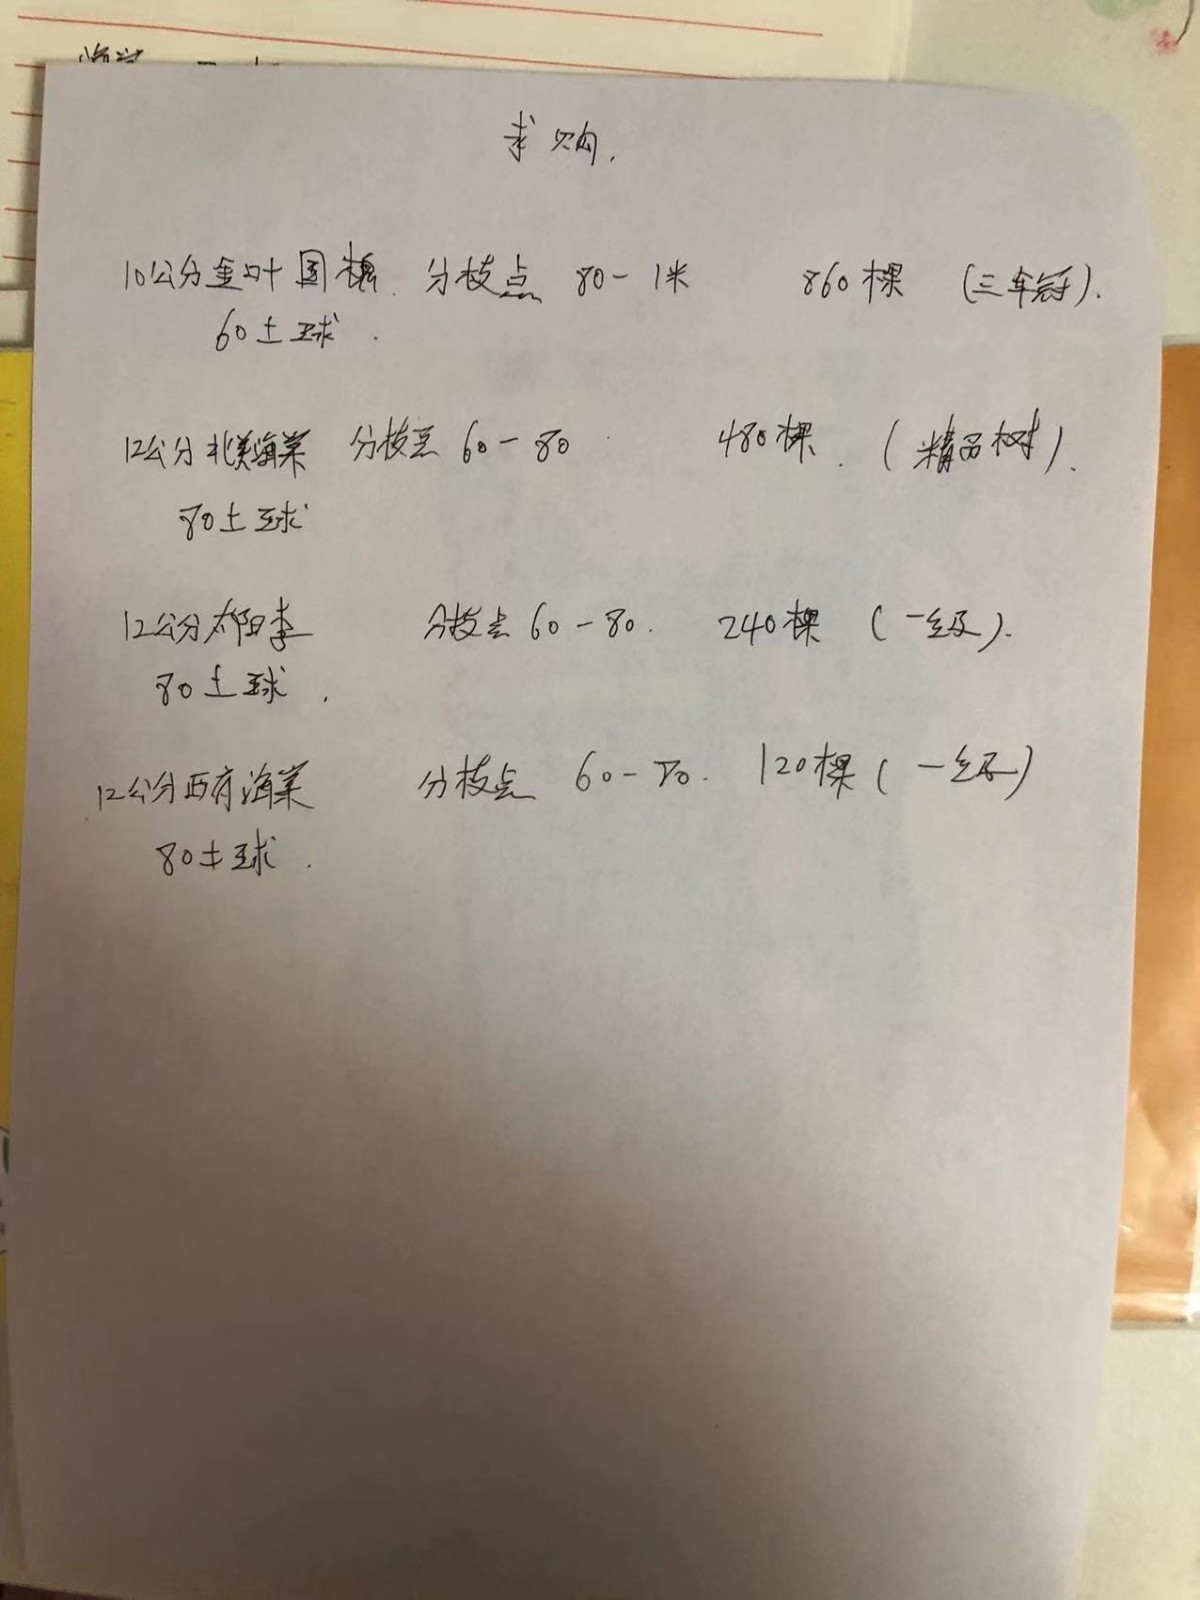 求购.
10公分金叶国槐. 分枝点 80-1米 860棵 (三年冠).
60土球.
12公分北美海棠 分枝点 60-80 480棵. (精品树).
80土球
12公分太阳李 分枝点 60-80. 240棵 (一级).
80土球.
12公分西府海棠 分枝点 60-80. 120棵 (一级)
80土球.